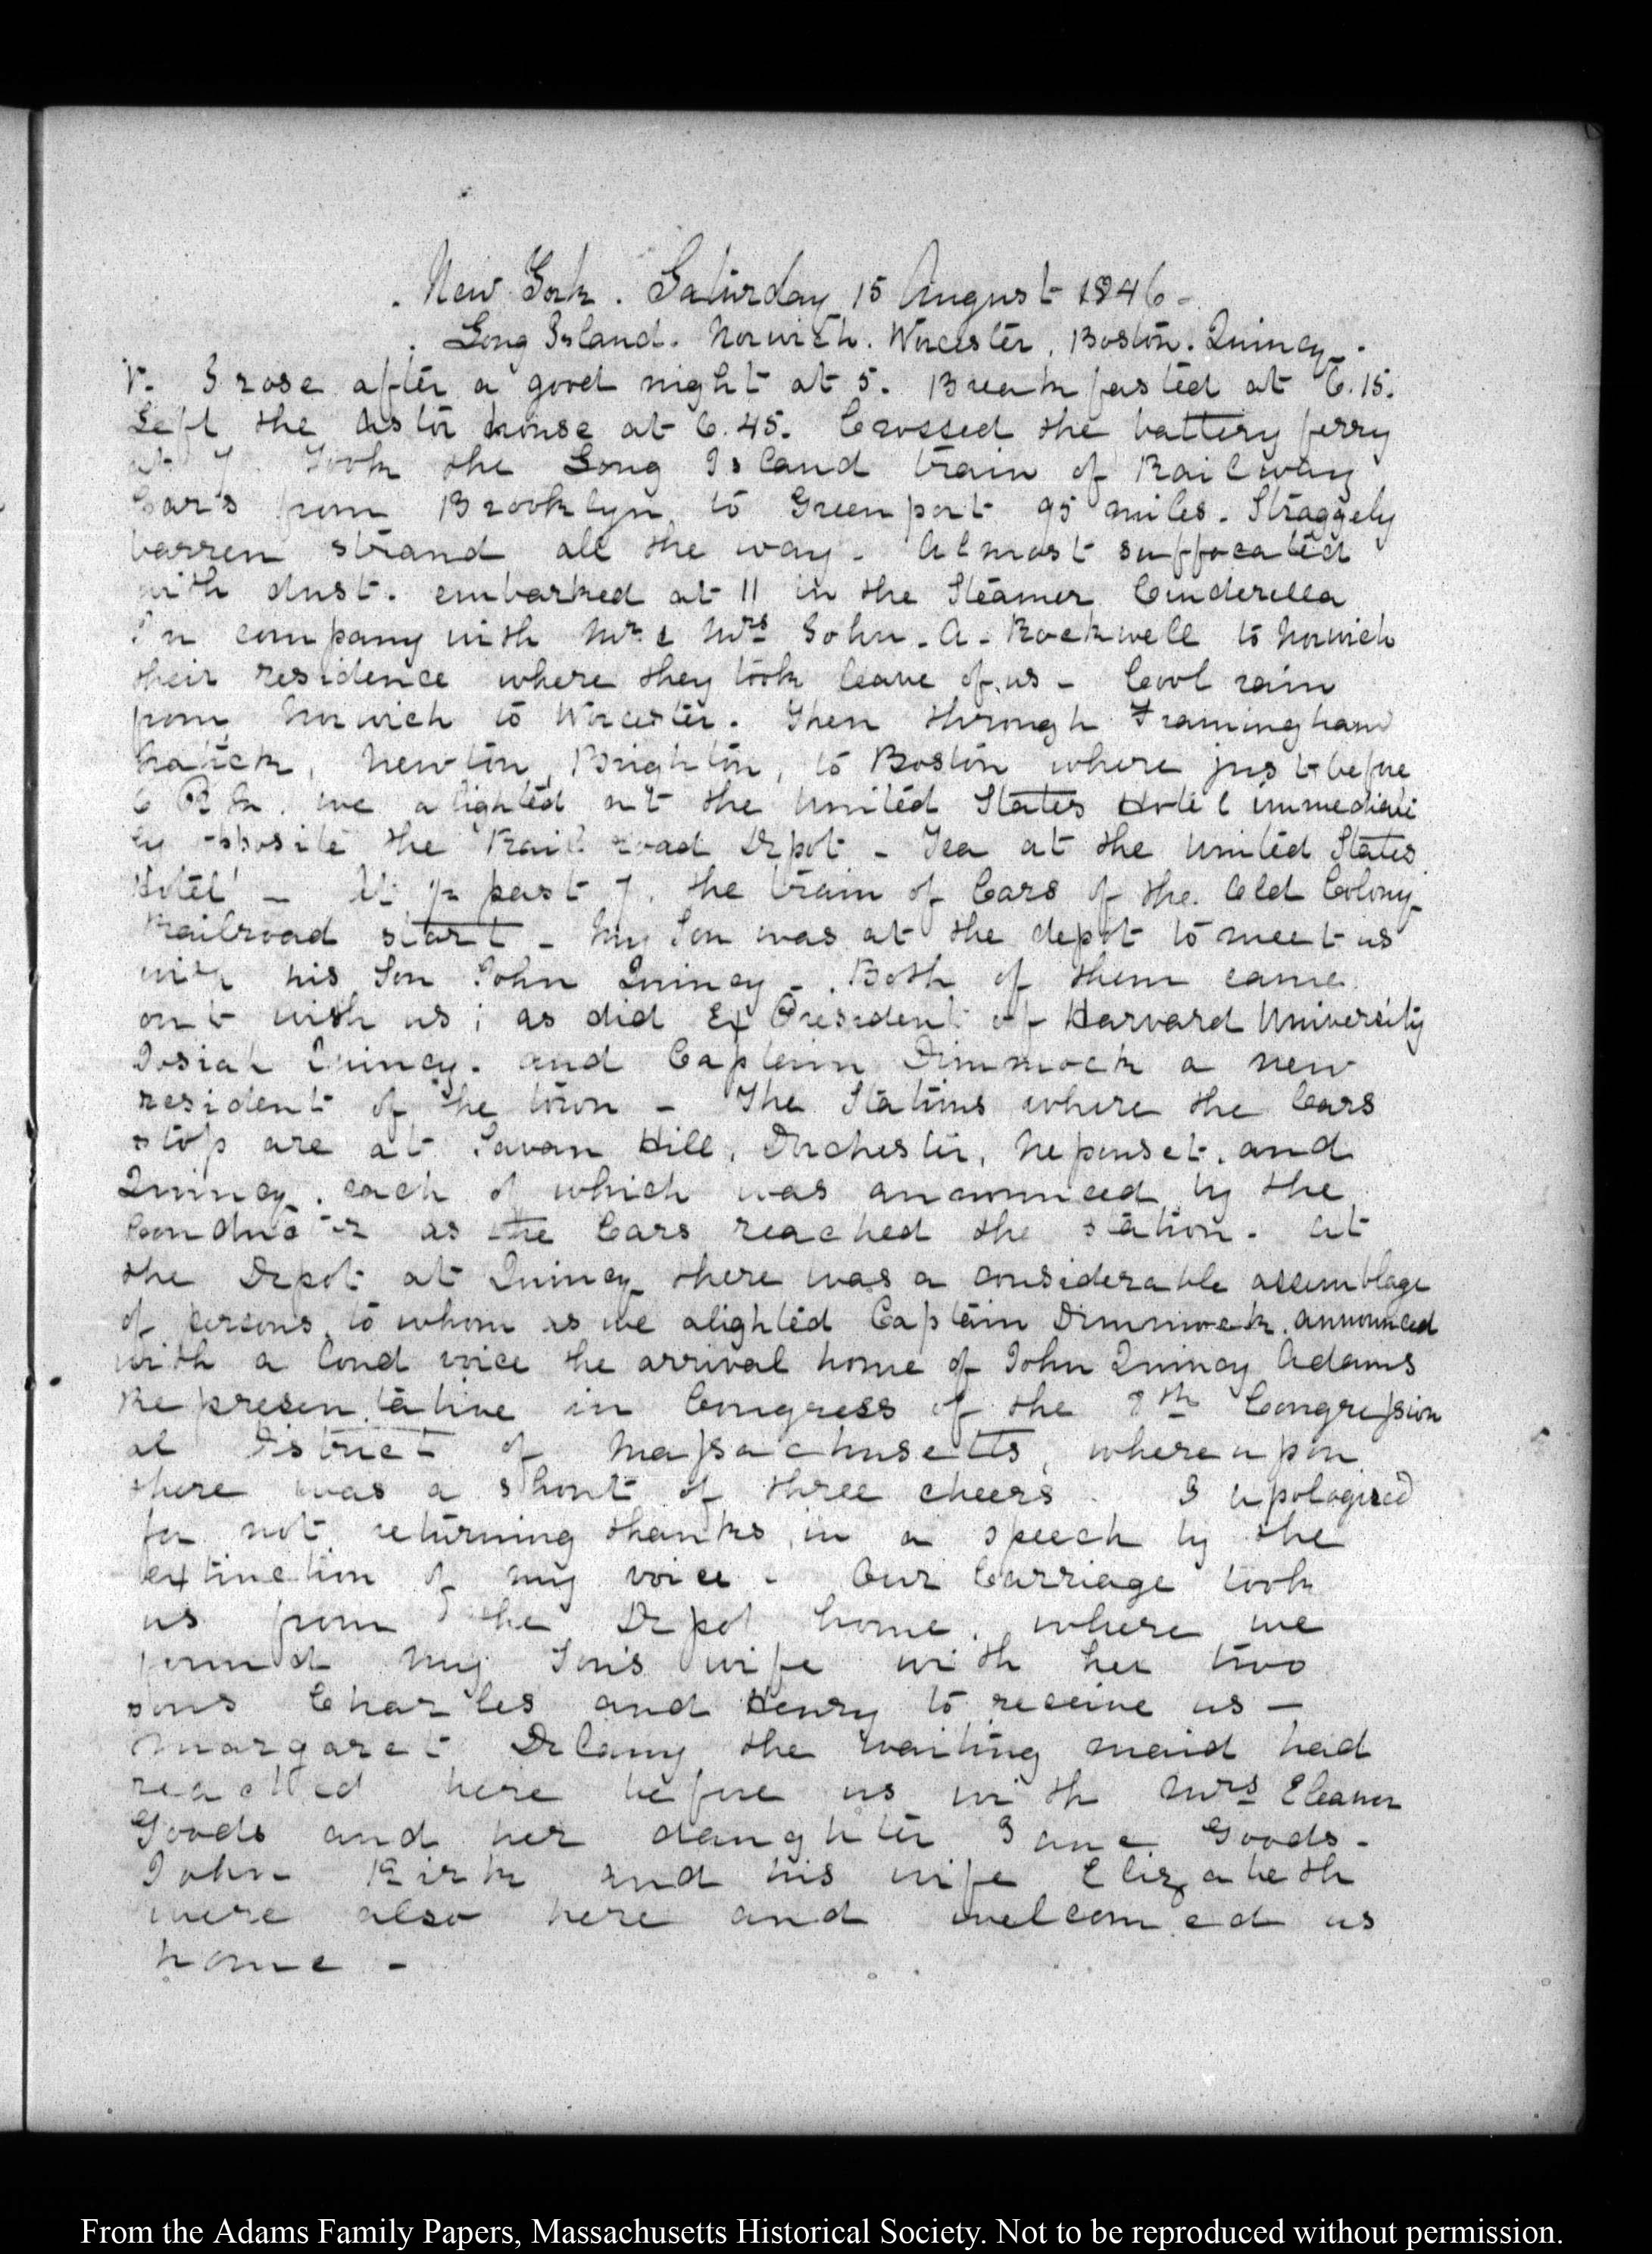 New York. Saturday 15 August 1846 -
Long Island. Norwich. Worcester. Boston. Quincy.
V. I rose after a good night at 5. Breakfasted at 6.15.
Left the Astor house at 6.45. Crossed the battery ferry
at 7. Took the Long Island train of Railway
Cars from Brooklyn to Greenport 95 miles. Straggely
barren strand all the way - Almost suffocated
with dust. embarked at 11 in the Steamer Cinderella
In company with Mr. & Mrs John. A. Rockwell to Norwich
their residence where they took leave of us - Cool rain
from Norwich to Worcester. Then through Framingham
Natick, Newton, Brighton, to Boston where just before
6 P.M. we alighted at the United States Hotel immediate
ly opposite the Rail road Depot - Tea at the United States
Hotel - At 1/2 past 7. the train of Cars of the Old Colony
Railroad start - My Son was at the depot to meet us
with his Son John Quincy - Both of them came
out with us; as did Ex President of Harvard University
Josiah Quincy. and Captain Dimmock a new
resident of the town - The Stations where the Cars
stop are at Savan Hill, Dorchester, Neponset, and
Quincy. each of which was announced by the
Conductor as the Cars reached the station. At
the Depot at Quincy there was a considerable assemblage
of persons, to whom as we alighted Captain Dimmock. announced
with a loud voice the arrival home of John Quincy Adams
Representative in Congress of the 8th Congression
al District of Massachusetts, whereupon
there was a shout of three cheers. I apologized
for not returning thanks in a speech by the
extinction of my voice - Our Carriage took
us from the Depot home. where we
found my Son's wife with her two
sons Charles and Henry to receive us -
Margaret Delany the waiting maid had
reached here before us with Mrs Eleanor
Goods and her daughter Jane Goods -
John Kirk and his wife Elizabeth
were also here and welcomed us
home -
From the Adams Family Papers, Massachusetts Historical Society. Not to be reproduced without permission.